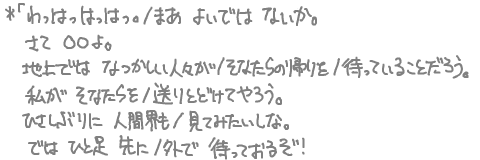 *「わっはっはっはっ。/まあ よいでは ないか。
さて ○○よ。
地上では なつかしい人々が/そなたらの帰りを/待っていることだろう。
私が そなたらを/送りとどけてやろう。
ひさしぶりに 人間界も/見てみたいしな。
では ひと足 先に/外で 待っておるぞ!